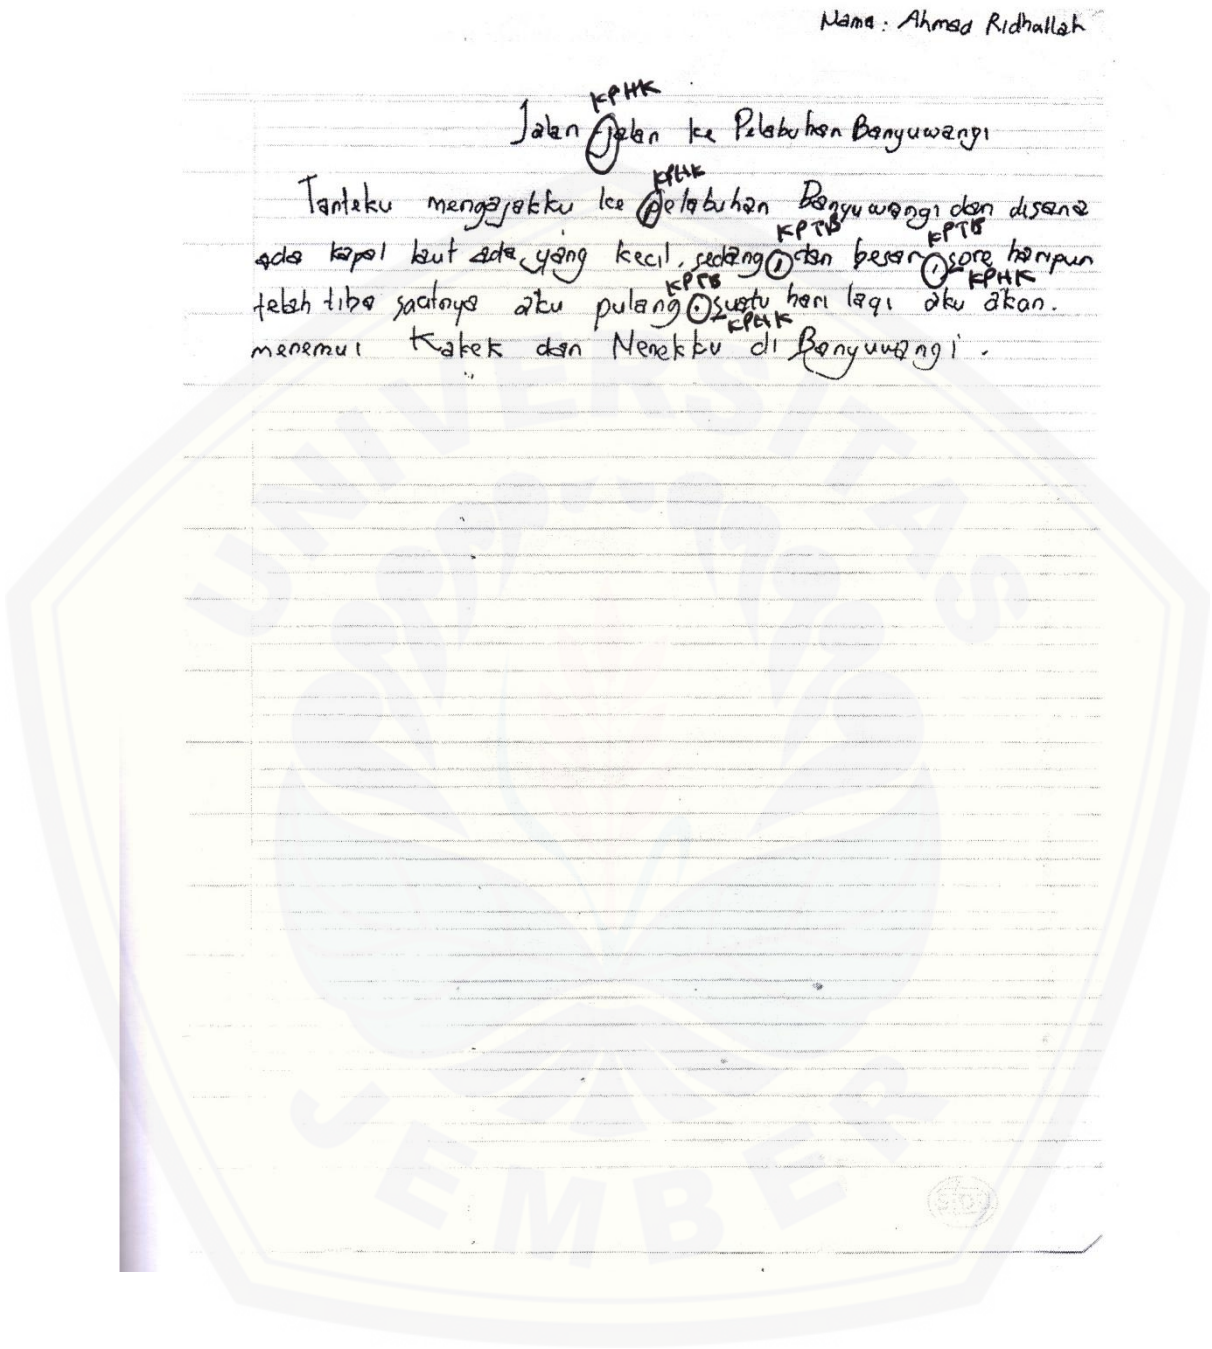 Nama : Ahmad Ridhallah
KPHK
Jalan-jalan ke Pelabuhan Banyuwangi
KPHK
Tanteku mengajakku ke pelabuhan Banyuwangi dan disana
KPTB KPTB
ada kapal laut ada yang kecil, sedang, dan besar, sore haripun
KPTB KPHK
telah tiba saatnya aku pulang. suatu hari lagi aku akan.
KPHK
menemui Kakek dan Nenekku di Banyuwangi.
UNIVERSITAS
JEMBER
SIDU